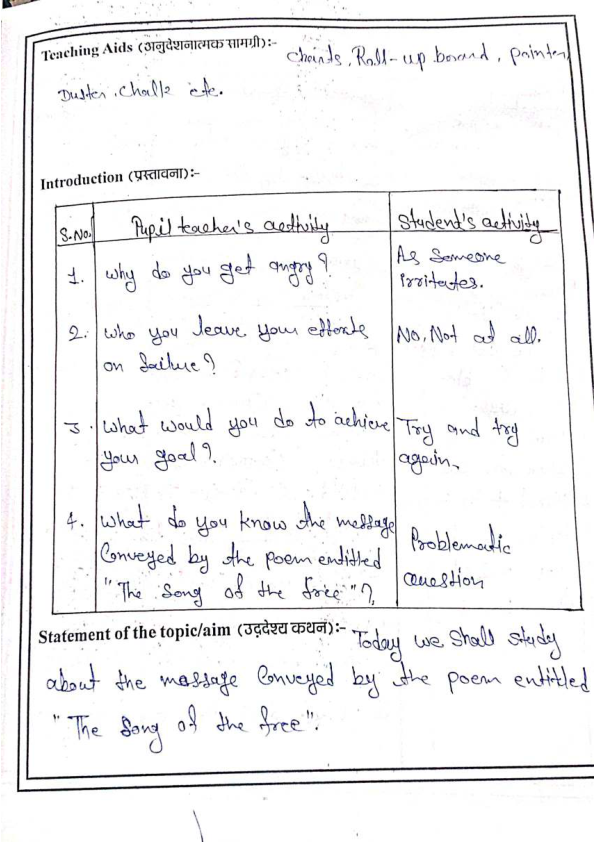 Teaching Aids (अनुदेशनात्मक सामग्री):- Charts, Roll-up board, pointer,
Duster, Chalk etc.
Introduction (प्रस्तावना):-
S.No. Pupil teacher's activity Student's activity
1. Why do you get angry? As Someone
irritates.
2. Who you leave your efforts No, Not at all.
on failure?
3. What would you do to achieve Try and try
your goal? again.
4. What do you know the message
Conveyed by the poem entitled Problematic
"The Song of the free"? Question
Statement of the topic/aim (उद्देश्य कथन):- Today we Shall study
about the message Conveyed by the poem entitled
"The Song of the free".